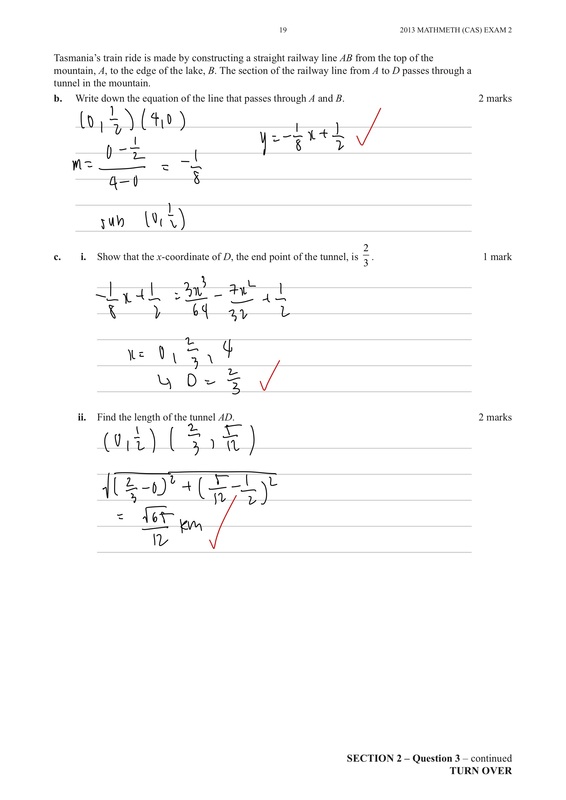 19
2013 MATHMETH (CAS) EXAM 2
Tasmania's train ride is made by constructing a straight railway line AB from the top of the
mountain, A, to the edge of the lake, B. The section of the railway line from A to D passes through a
tunnel in the mountain.
b. Write down the equation of the line that passes through A and B. 2 marks
(0, 1/2) (4, 0)
y = -1/8 x + 1/2
m = (0 - 1/2)/(4 - 0) = -1/8
sub (0, 1/2)
c. i. Show that the x-coordinate of D, the end point of the tunnel, is 2/3. 1 mark
-1/8 x + 1/2 = 3x³/64 - 7x²/32 + 1/2
x = 0, 2/3, 4
↳ D = 2/3
ii. Find the length of the tunnel AD. 2 marks
(0, 1/2) (2/3, 5/12)
√((2/3 - 0)² + (5/12 - 1/2)²)
= √65/12 km
SECTION 2 – Question 3 – continued
TURN OVER